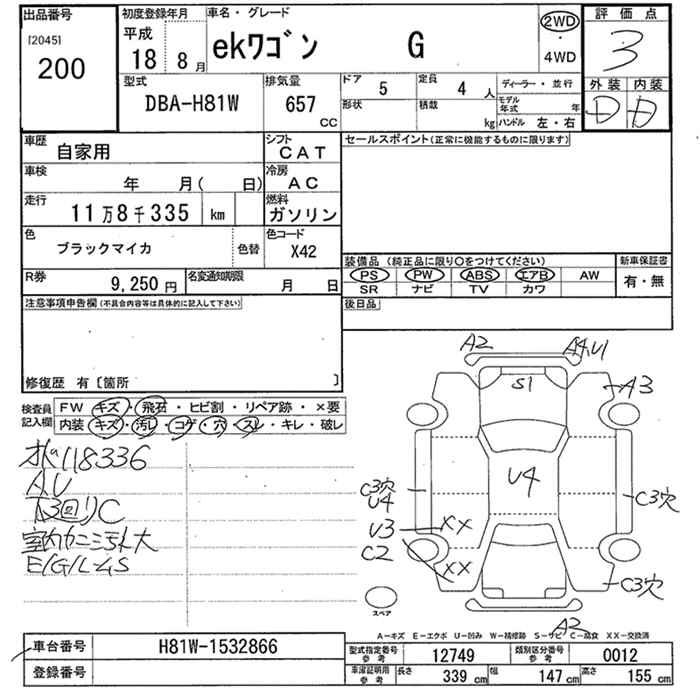 出品番号
[2045]
200
初度登録年月
平成
18 8 月
車名・グレード
ekワゴン G
2WD
・
4WD
評価点
3
外装 内装
D D
型式
DBA-H81W
排気量
657
CC
ドア
5
定員
4 人
形状
積載
kg
ディーラー・並行
モデル年式 年
ハンドル 左・右
車歴
自家用
シフト
CAT
車検
年 月( 日)
冷房
AC
走行
11万8千335 km
燃料
ガソリン
色
ブラックマイカ
色替
色コード
X42
R券
9,250 円
名変通知期限
月 日
セールスポイント(正常に機能するものに限ります)
装備品(純正品に限り○をつけてください)
PS PW ABS エアB AW
SR ナビ TV カワ
新車保証書
有・無
後日品
注意事項申告欄(不具合内容等は具体的に記入して下さい)
修復歴 有〔箇所 〕
検査員
記入欄
FW キズ・飛石・ヒビ割・リペア跡・×要
内装・キズ・汚レ・コゲ・穴・スレ・キレ・破レ
118336
A,U
下回りC
A2
A4,U1
S1
A3
U4
C3穴
U4
U3
C2
XX
XX
C3穴
C3穴
A2
スペア
A-キズ E-エクボ U-凹み W-補修跡 S-サビ C-腐食 XX-交換済
車台番号
H81W-1532866
登録番号
型式指定番号
参考
12749
類別区分番号
参考
0012
車庫証明用
参考
長さ
339 cm
幅
147 cm
高さ
155 cm